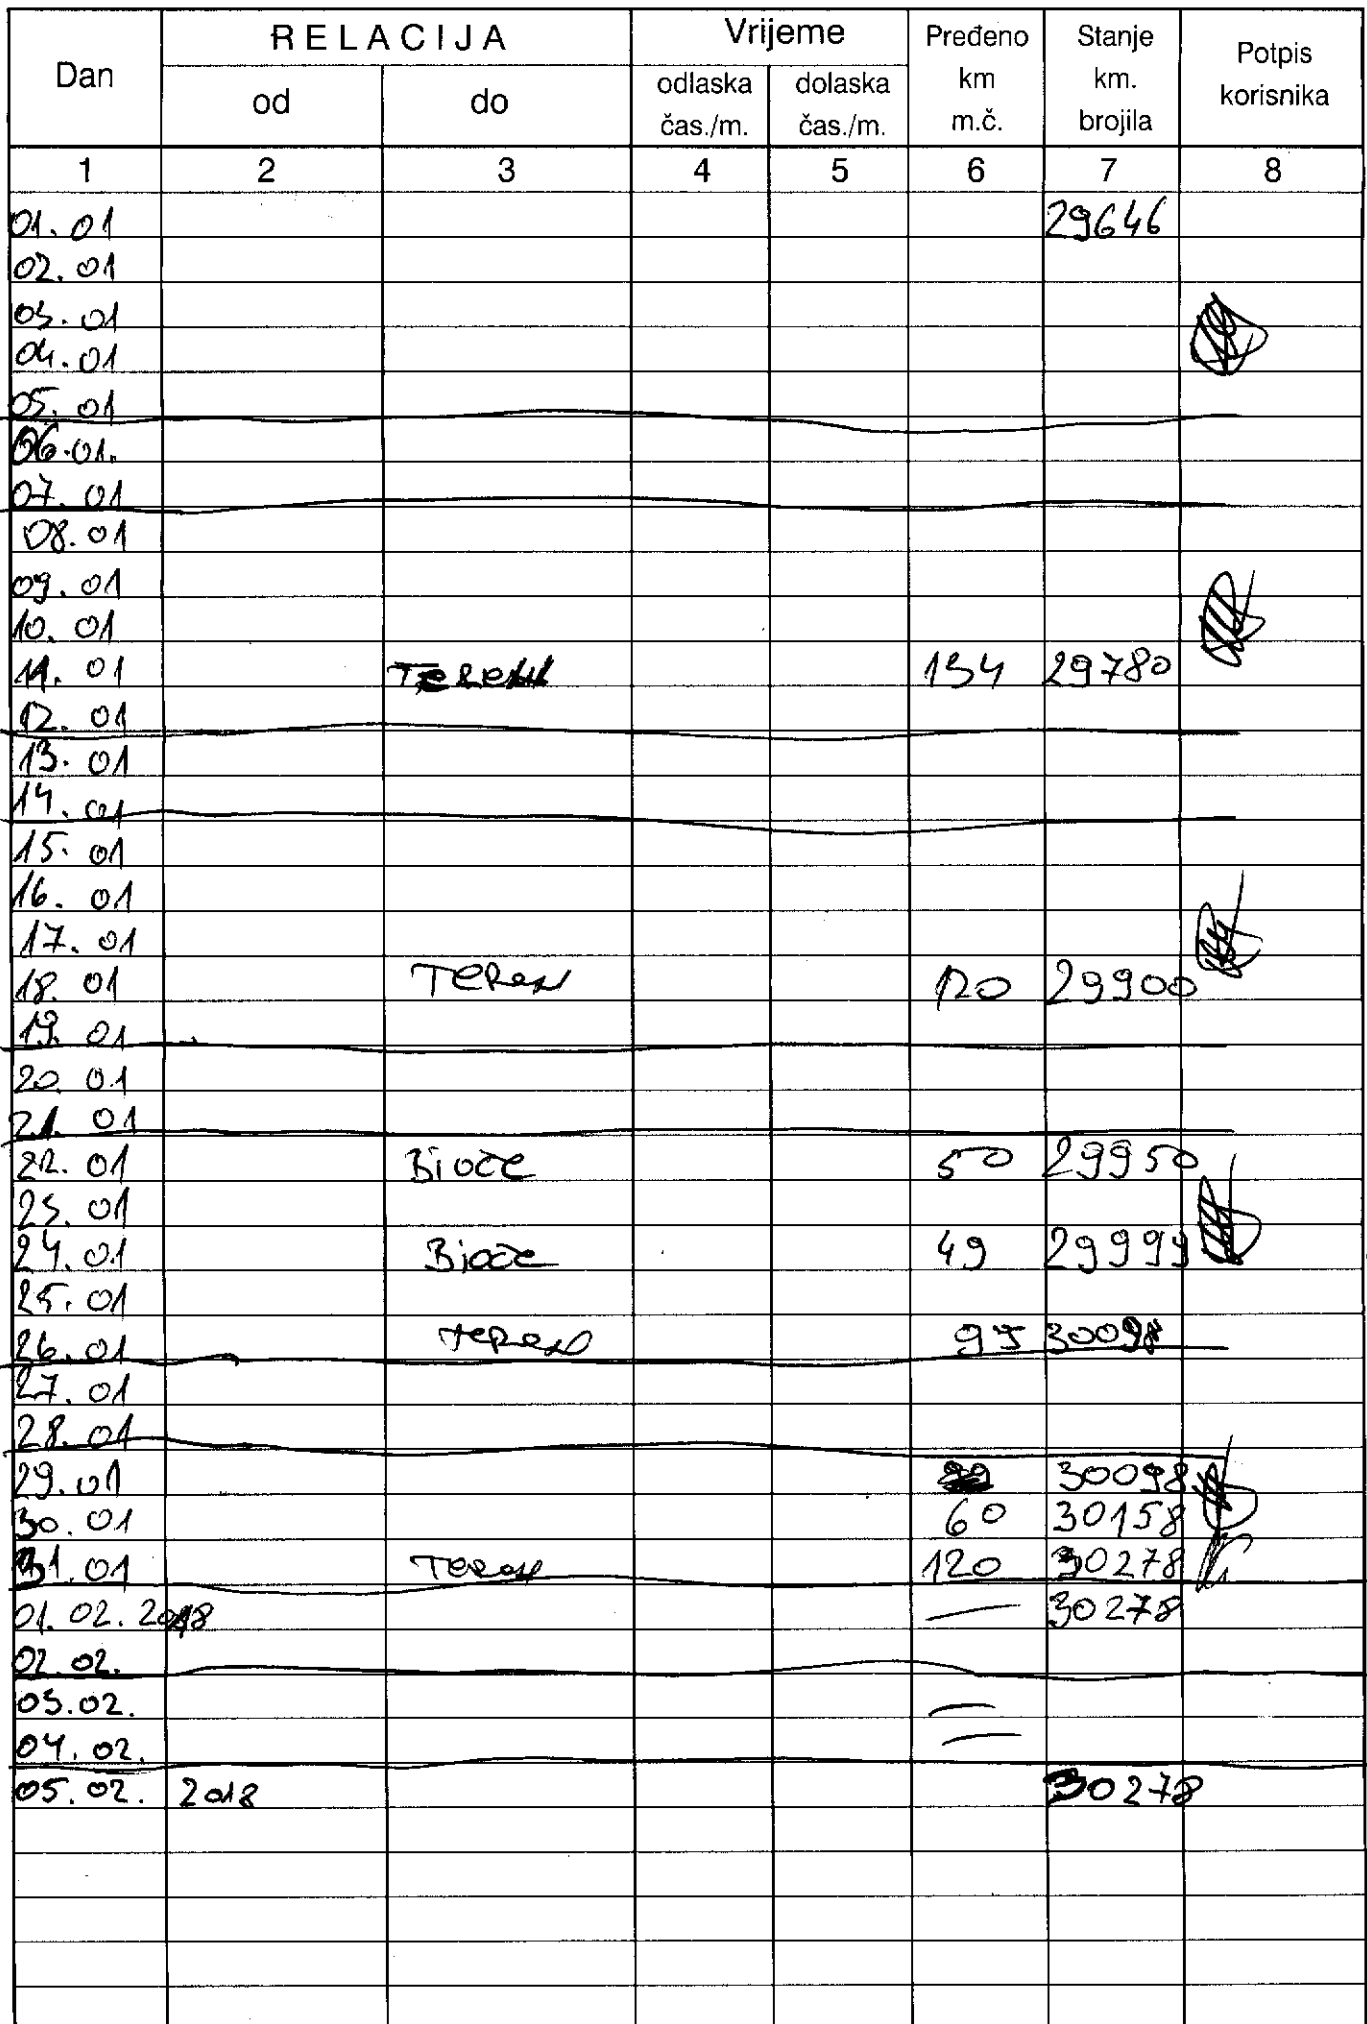 Dan RELACIJA Vrijeme Pređeno km m.č. Stanje km. brojila Potpis korisnika
od do odlaska čas./m. dolaska čas./m.
1 2 3 4 5 6 7 8
01.01 29646
02.01
03.01
04.01
05.01
06.01.
07.01
08.01
09.01
10.01
11.01 TEREN 134 29780
12.01
13.01
14.01
15.01
16.01
17.01
18.01 TEREN 120 29900
19.01
20.01
21.01
22.01 Bioče 50 29950
23.01
24.01 Bioče 49 29999
25.01
26.01 TEREN 30098
27.01
28.01
29.01 30098
30.01 60 30158
31.01 TEREN 120 30278
01.02.2018 — 30278
02.02.
03.02. —
04.02. —
05.02. 2018 30278